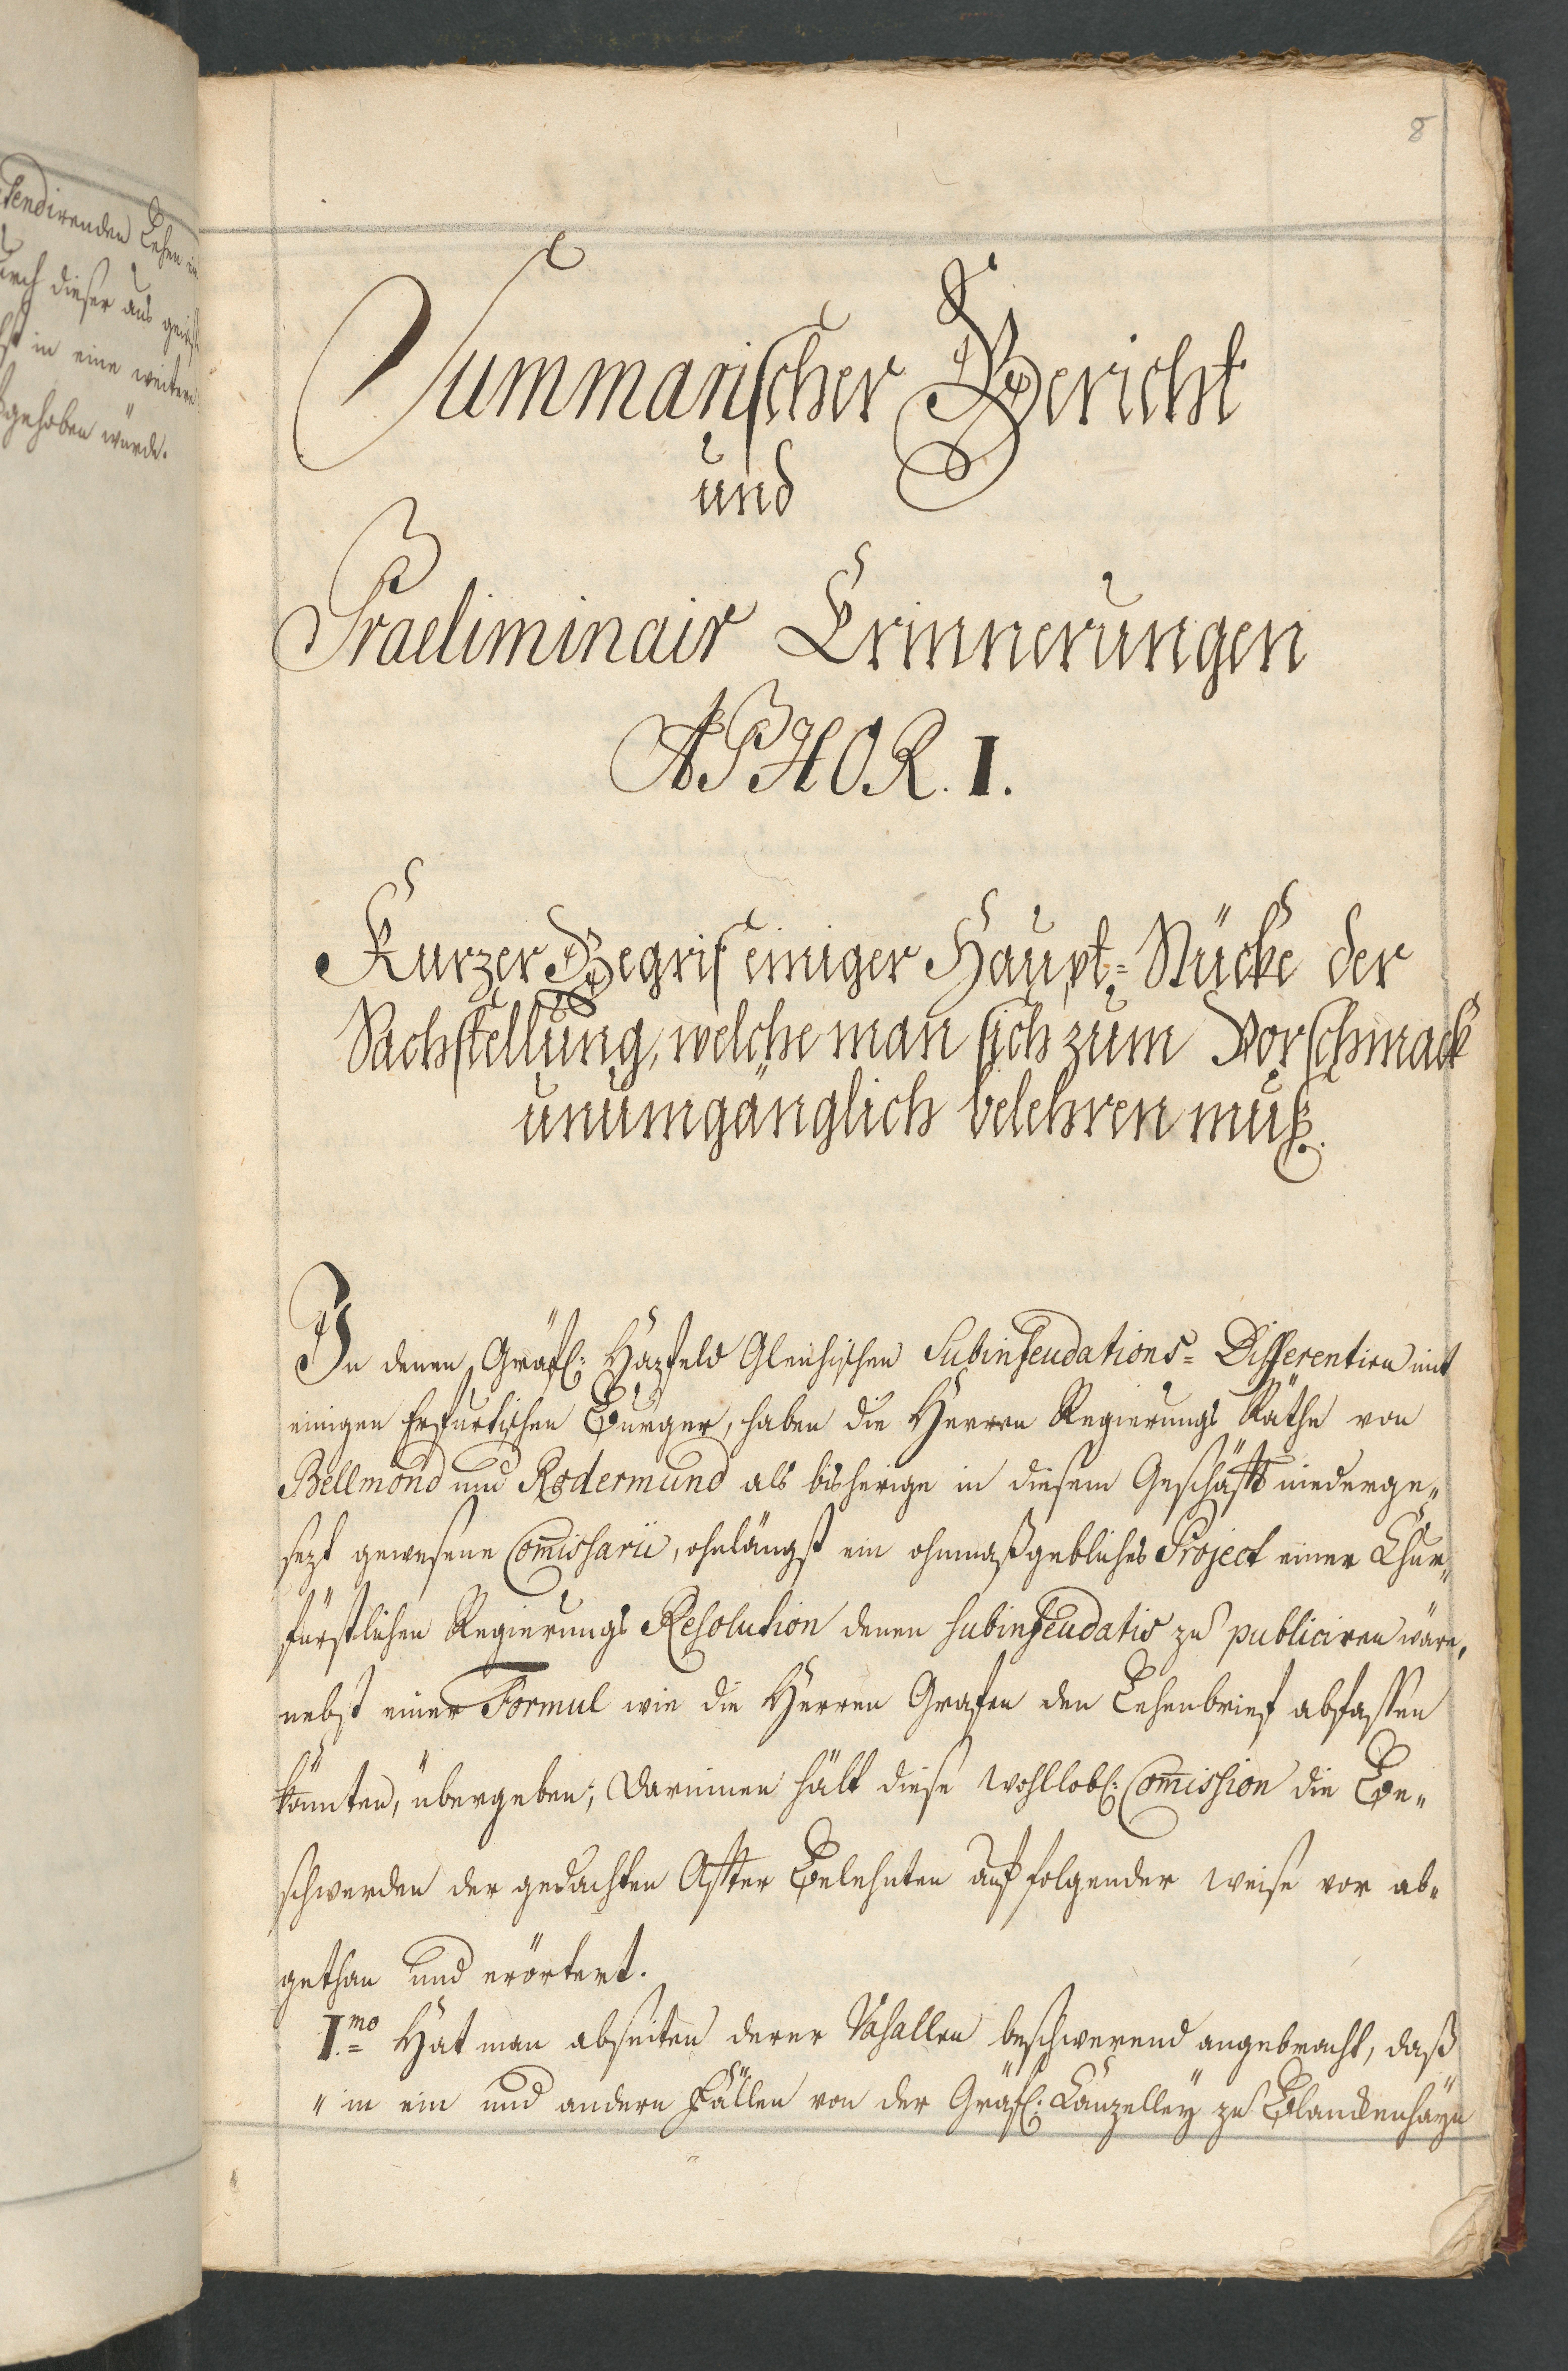 tendirenden Lehen
durch dieser aus
in eine weitere
gehoben würde.
8
Summarischer Bericht
und
Praeliminair Erinnerungen
APHOR. I.
Kurzer Begrif einiger Haupt-Stücke der
Sachstellung, welche man sich zum Vorschmack
unumgänglich belehren muß.
In denen Gräfl: Hazfeld Gleichischen Subinfeudations-Differentien mit
einigen Erfurtischen Burger, haben die Herren Regierungs Räthe von
Bellmond und Rodermund als bisherige in diesem Geschäfft niederge„
sezt gewesene Com̄issarii, ohnlängst ein ohnmaßgebliches Project einer Chur„
fürstlichen Regierungs Resolution denen subinfeudatis zu publiciren wäre,
nebst einer Formul wie die Herren Grafen den Lehenbrief abfassen
könnten, übergeben; Darinnen hält diese wohllobl: Com̄ission die Be„
schwerden der gedachten After Belehnten auf folgender weise vor ab„
gethan und erörtert.
I.mo Hat man abseiten derer Vasallen beschwerend angebracht, daß
„ in ein und andern Fällen von der Gräfl: Canzelley zu Blanckenhayn